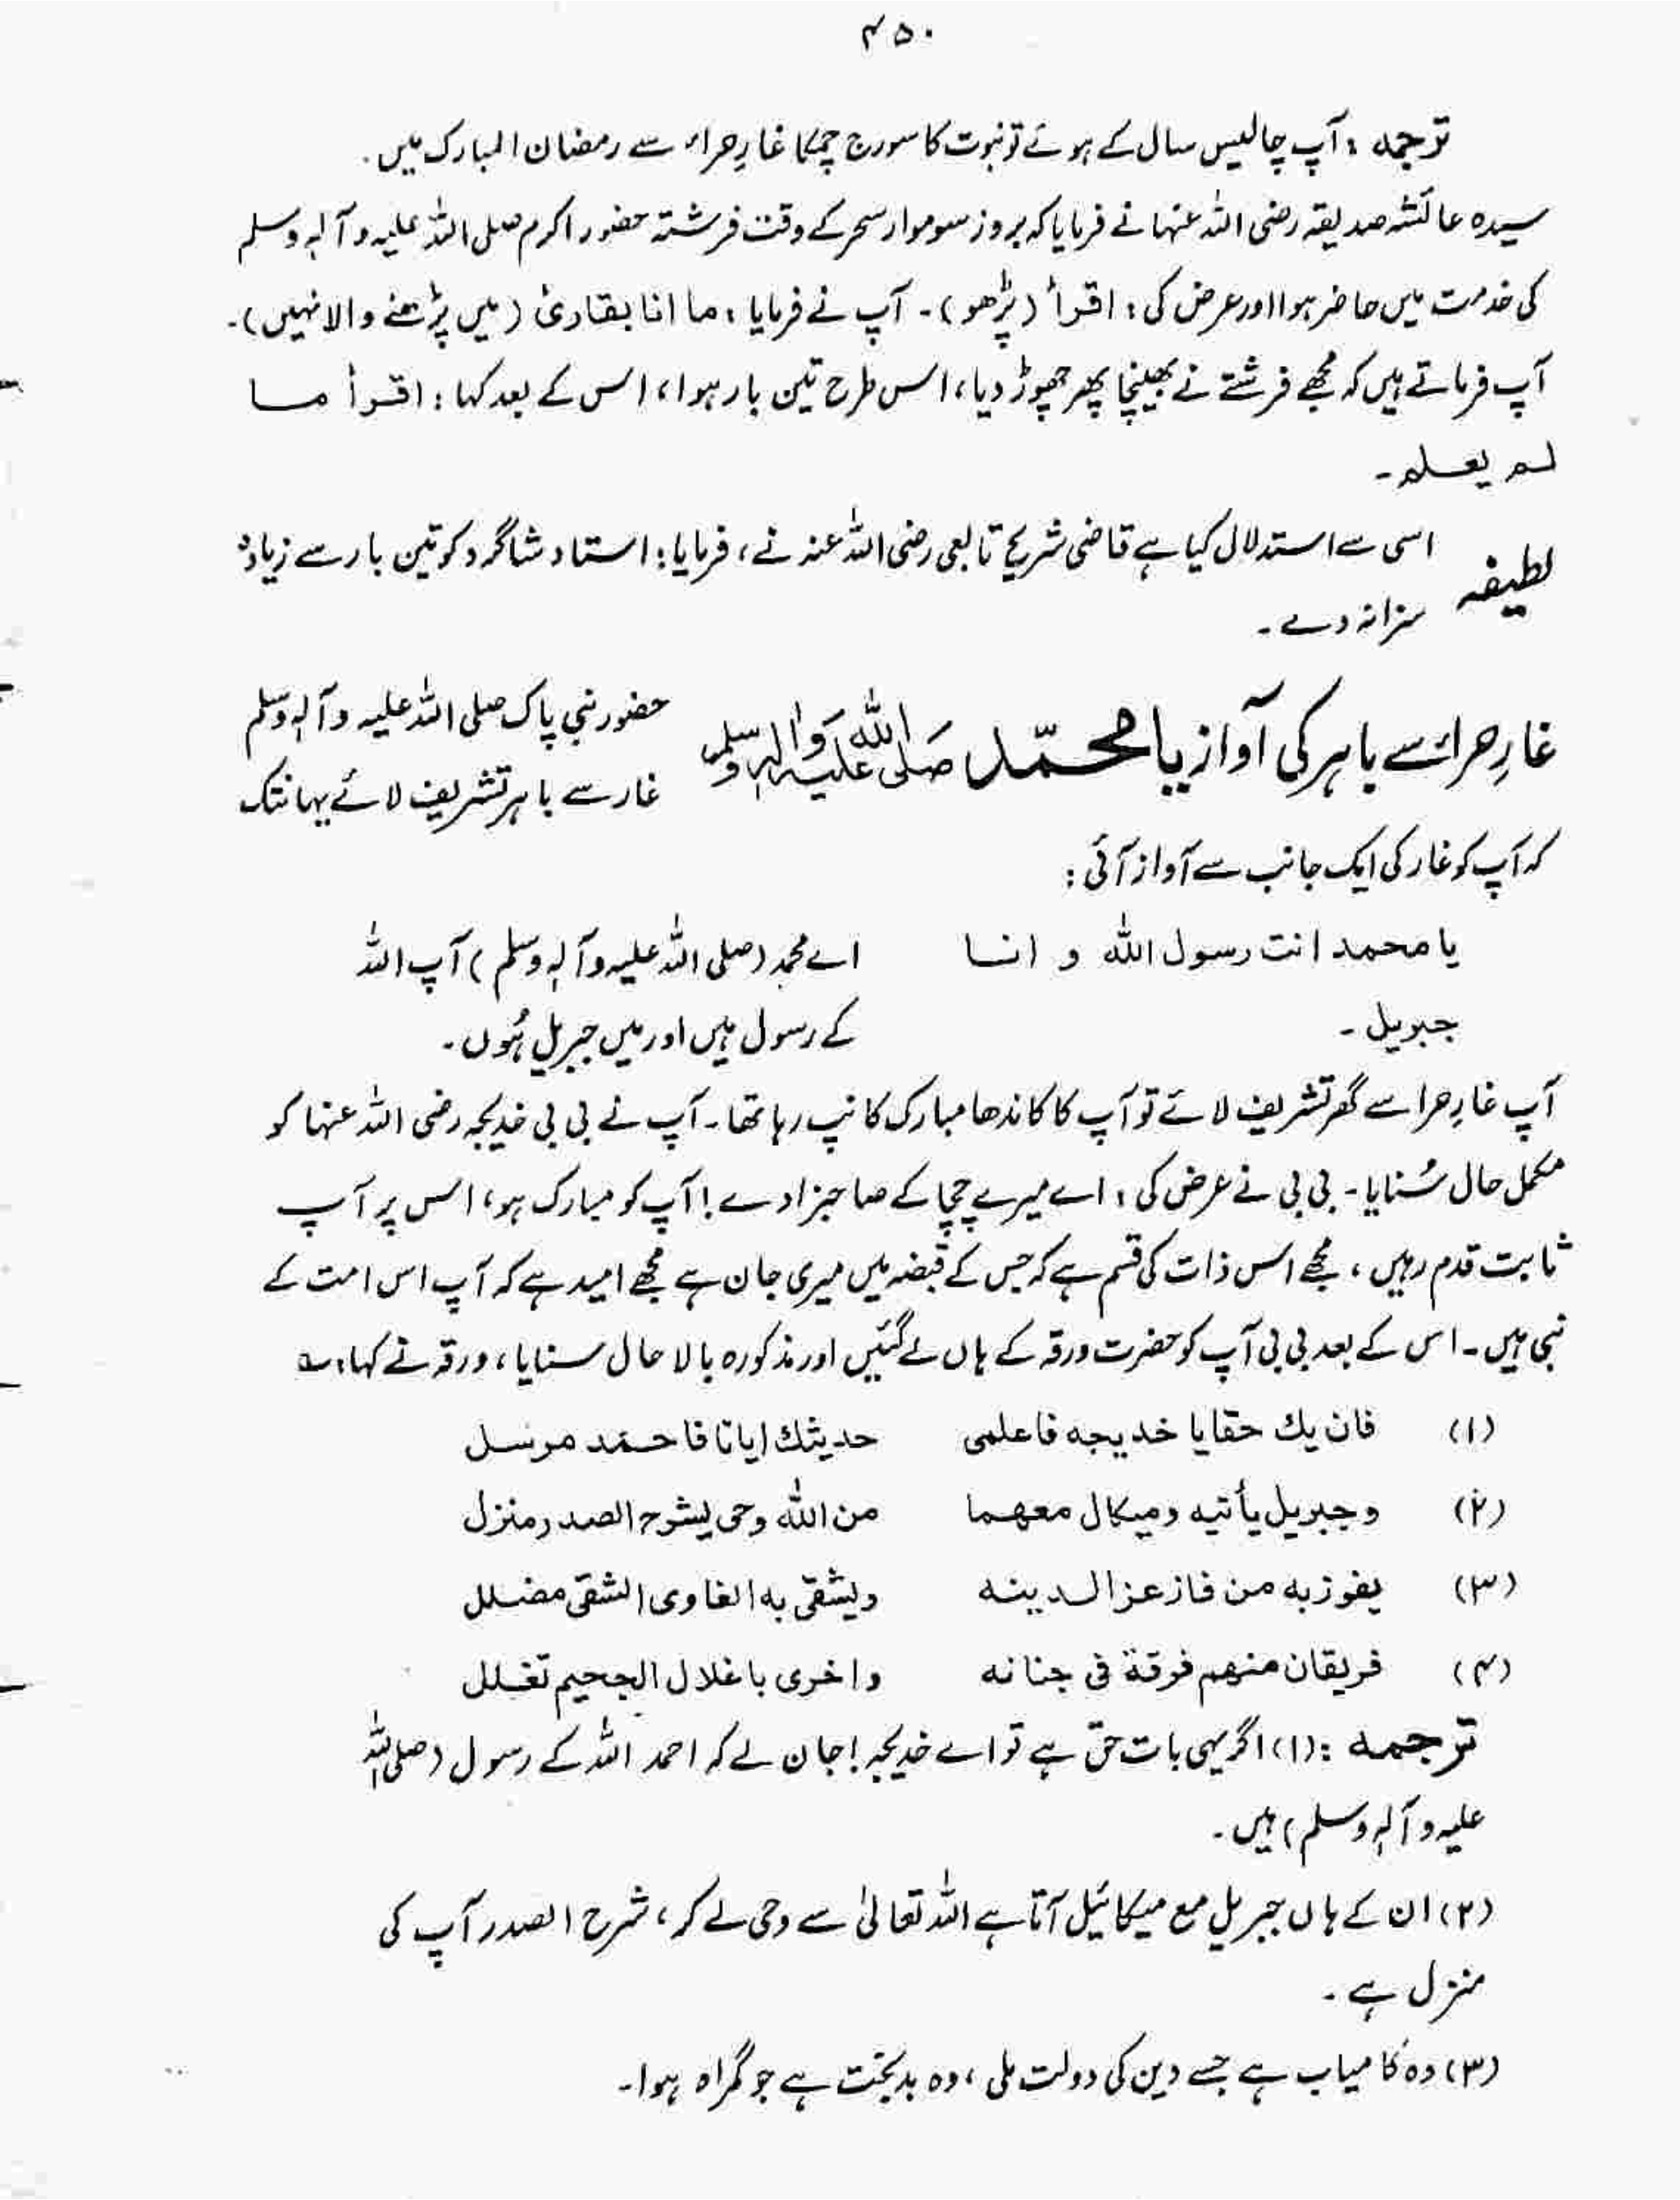 ۴۵۰
ترجمہ : آپ چالیس سال کے ہوئے تو نبوت کا سورج چمکا غارِ حراء سے رمضان المبارک میں۔
سیدہ عائشہ صدیقہ رضی اللہ عنہا نے فرمایا کہ بروز سوموار سحر کے وقت فرشتہ حضور اکرم صلی اللہ علیہ وآلہٖ وسلم
کی خدمت میں حاضر ہوا اور عرض کی : اقرأ (پڑھو)۔ آپ نے فرمایا : ما انا بقارئ (میں پڑھنے والا نہیں)۔
آپ فرماتے ہیں کہ مجھے فرشتے نے بھینچا پھر چھوڑ دیا، اس طرح تین بار ہوا، اس کے بعد کہا : اقرأ ما
لم یعلم۔
لطیفہ اسی سے استدلال کیا ہے قاضی شریح تابعی رضی اللہ عنہ نے، فرمایا : استاد شاگرد کو تین بار سے زیادہ
سزا نہ دے۔
غارِ حراء سے باہر کی آواز یا محمّد صَلی اللہ علیہ وَاٰلہٖ وسلم حضور نبی پاک صلی اللہ علیہ وآلہٖ وسلم
غار سے باہر تشریف لائے یہانتک
کہ آپ کو غار کی ایک جانب سے آواز آئی :
یا محمد انت رسول اللہ و انا اے محمد (صلی اللہ علیہ وآلہٖ وسلم) آپ اللہ
جبریل۔ کے رسول ہیں اور میں جبریل ہُوں۔
آپ غارِ حرا سے گھر تشریف لائے تو آپ کا کاندھا مبارک کانپ رہا تھا۔ آپ نے بی بی خدیجہ رضی اللہ عنہا کو
مکمل حال سُنایا۔ بی بی نے عرض کی : اے میرے چچا کے صاحبزادے! آپ کو مبارک ہو، اس پر آپ
ثابت قدم رہیں، مجھے اس ذات کی قسم ہے کہ جس کے قبضہ میں میری جان ہے مجھے امید ہے کہ آپ اس امت کے
نبی ہیں۔ اس کے بعد بی بی آپ کو حضرت ورقہ کے ہاں لے گئیں اور مذکورہ بالا حال سنایا، ورقہ نے کہا : ؎
(۱) فان یك حقا یا خدیجه فاعلمی حدیثك ایانا فاحمد مرسل
(۲) وجبریل یأتیه ومیکال معهما من الله وحی یشرح الصدر منزل
(۳) یفوز به من فاز عز الدینه ویشقی به الغاوی الشقی مضلل
(۴) فریقان منهم فرقة فی جنانه واخری باغلال الجحیم تغلل
ترجمہ : (۱) اگر یہی بات حق ہے تو اے خدیجہ! جان لے کہ احمد اللہ کے رسول (صلی اللہ
علیہ وآلہٖ وسلم) ہیں۔
(۲) ان کے ہاں جبریل مع میکائیل آتا ہے اللہ تعالیٰ سے وحی لے کر، شرح الصدر آپ کی
منزل ہے۔
(۳) وہ کامیاب ہے جسے دین کی دولت ملی، وہ بدبخت ہے جو گمراہ ہوا۔